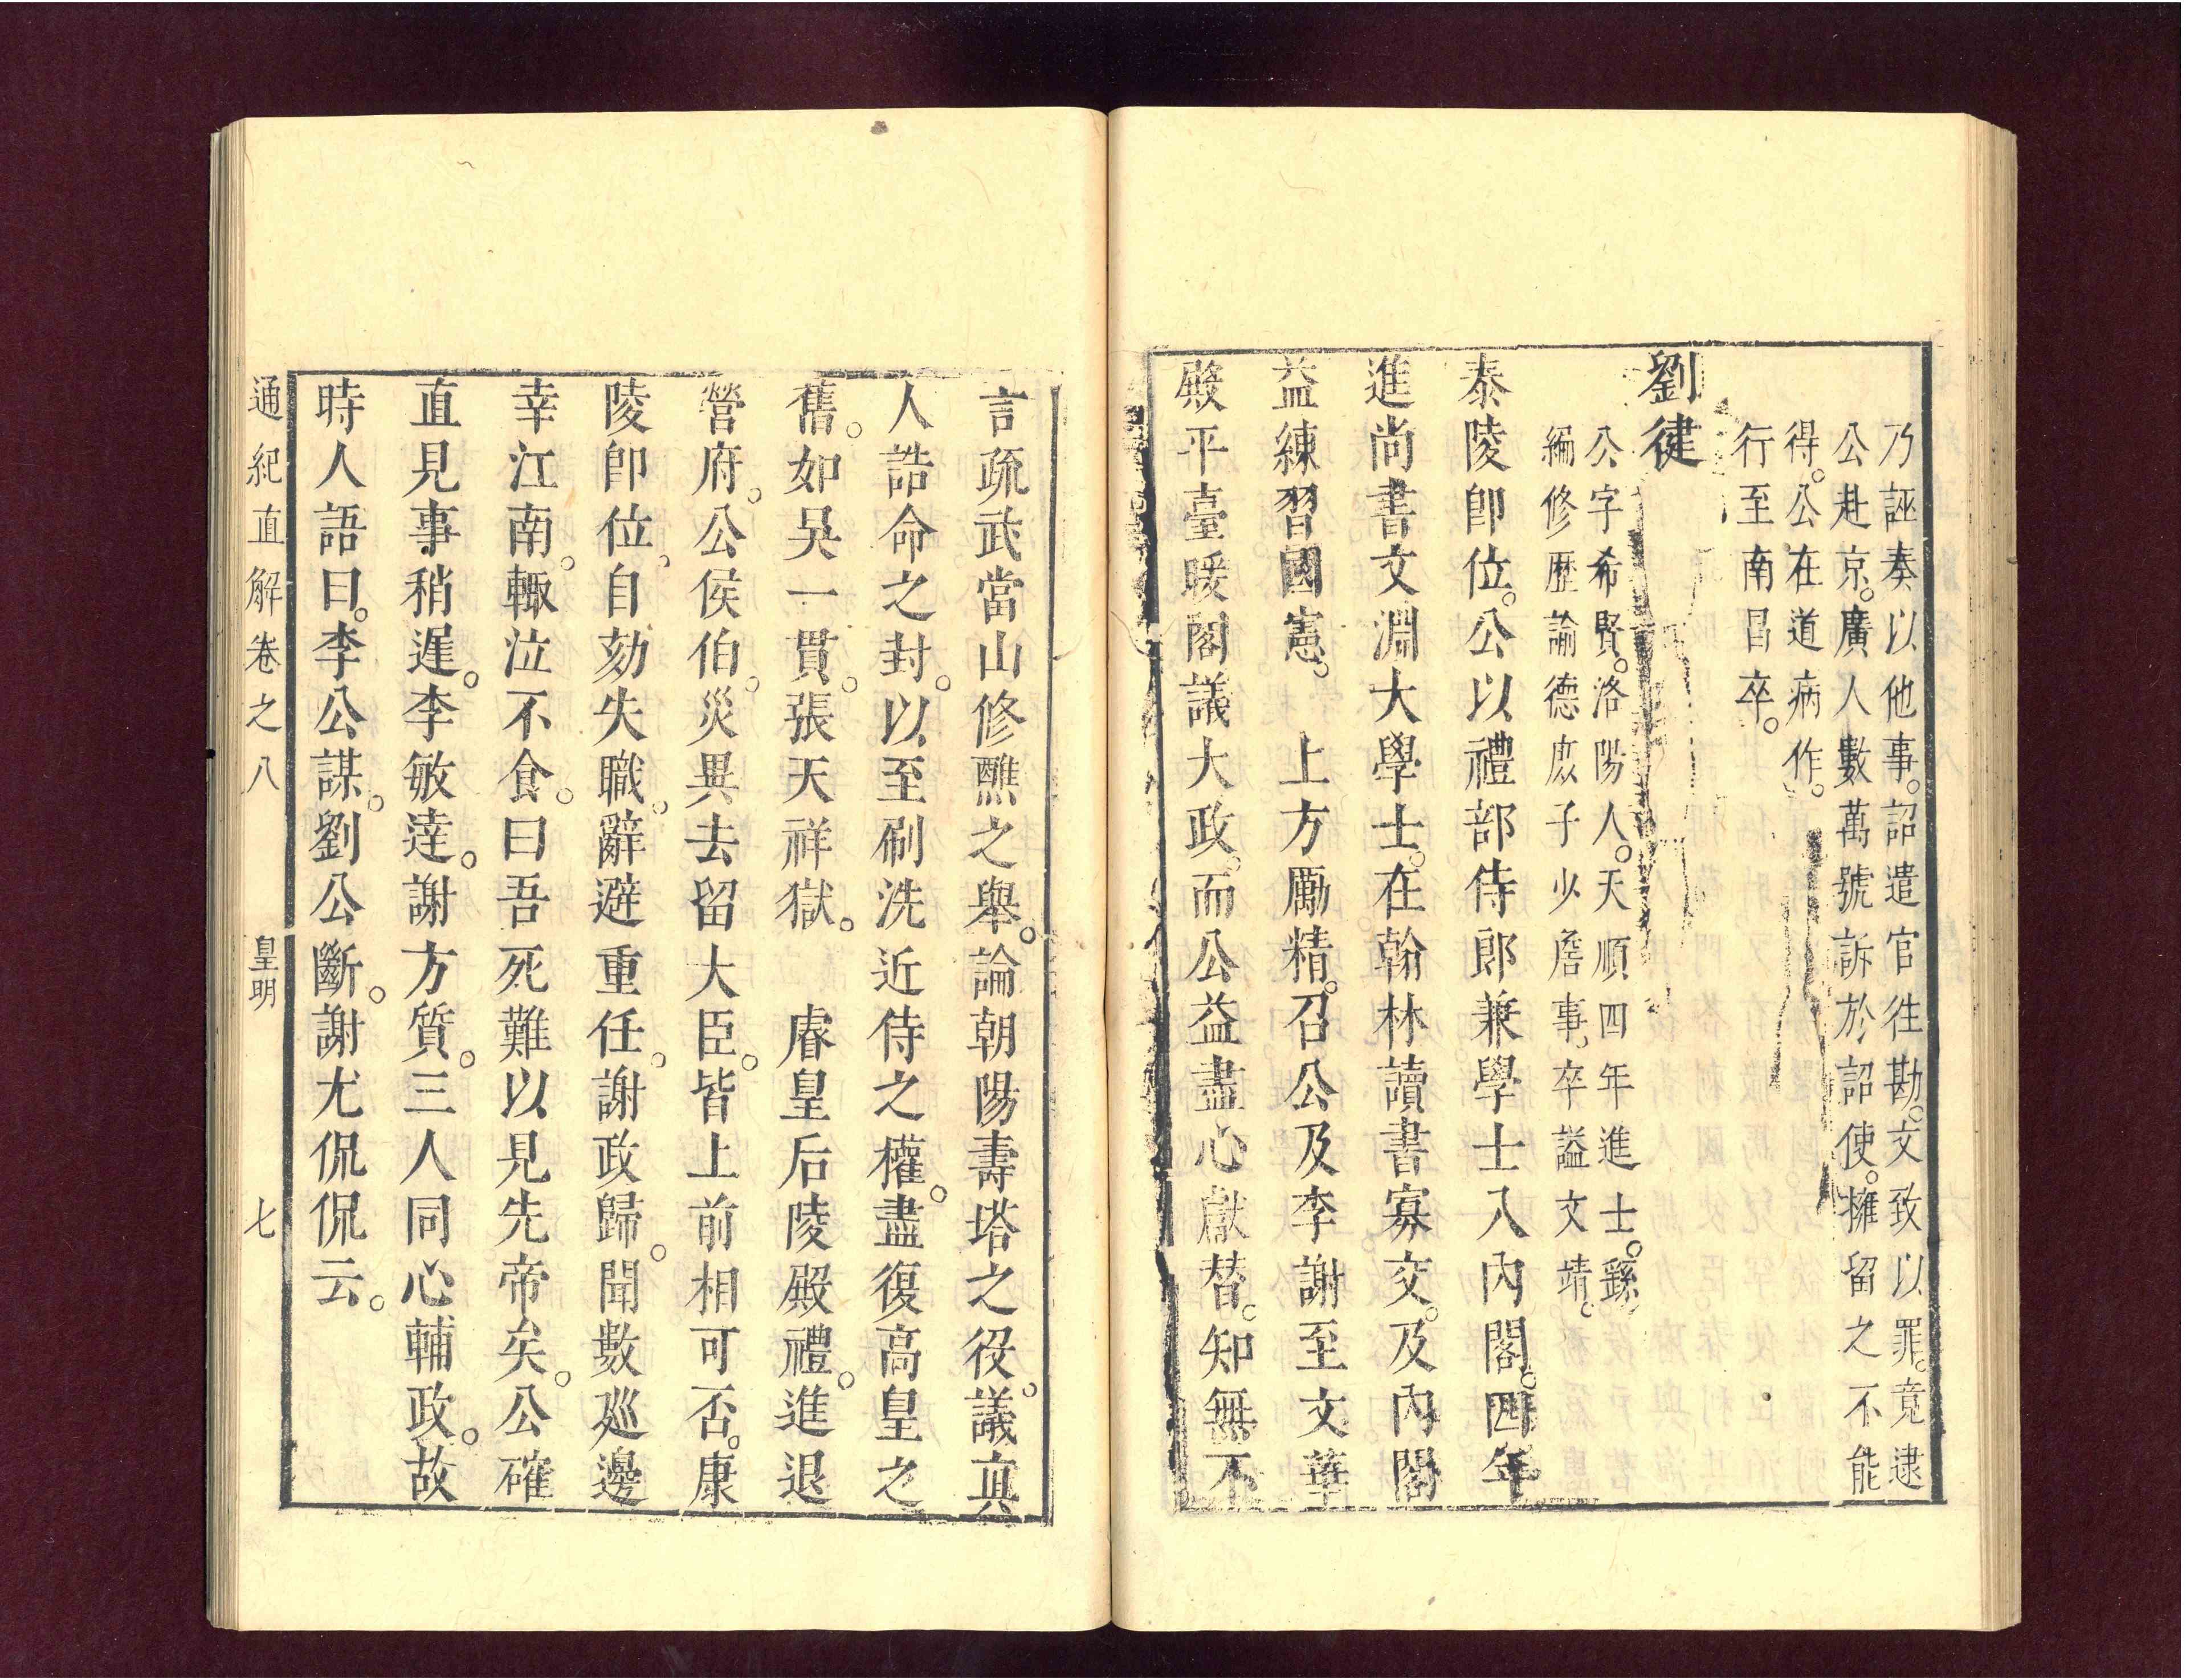 乃誣奏以他事。詔遣官往勘。文致以罪。竟逮
公赴京。廣人數萬號訴於詔使。擁留之不能
得。公在道病作。
行至南昌卒。
劉健
公字希賢。洛陽人。天順四年進士。繇
編修歷諭德庶子少詹事。卒謚文靖。
泰陵卽位。公以禮部侍郎兼學士入內閣。四年
進尚書文淵大學士。在翰林讀書寡交。及內閣
益練習國憲。　上方勵精。召公及李謝至文華
殿平臺暖閣議大政。而公益盡心獻替。知無不
言疏武當山修醮之舉。論朝陽壽塔之役。議真
人誥命之封。以至刷洗近侍之權。盡復高皇之
舊。如吳一貫。張天祥獄。　睿皇后陵殿禮。進退
營府。公侯伯。災異去留大臣。皆上前相可否。康
陵卽位。自劾失職。辭避重任。謝政歸。聞數廵邊
幸江南。輙泣不食。曰吾死難以見先帝矣。公確
直見事稍遲。李敏達。謝方質。三人同心輔政。故
時人語曰。李公謀。劉公斷。謝尤侃侃云。
通紀直解卷之八　皇明　七